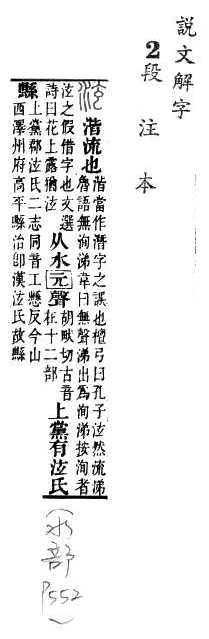 說文解字
2段注本
泫 湝流也
湝當作潛字之誤也檀弓曰孔子泫然流涕
魯語無洵涕韋曰無聲涕出爲洵涕按洵者
泫之假借字也文選
詩曰花上露猶泫
从水元聲
胡畎切古音
在十二部
上黨有泫氏
縣
上黨郡泫氏二志同晉工懸反今山
西澤州府高平縣治卽漢泫氏故縣
(水部P552)